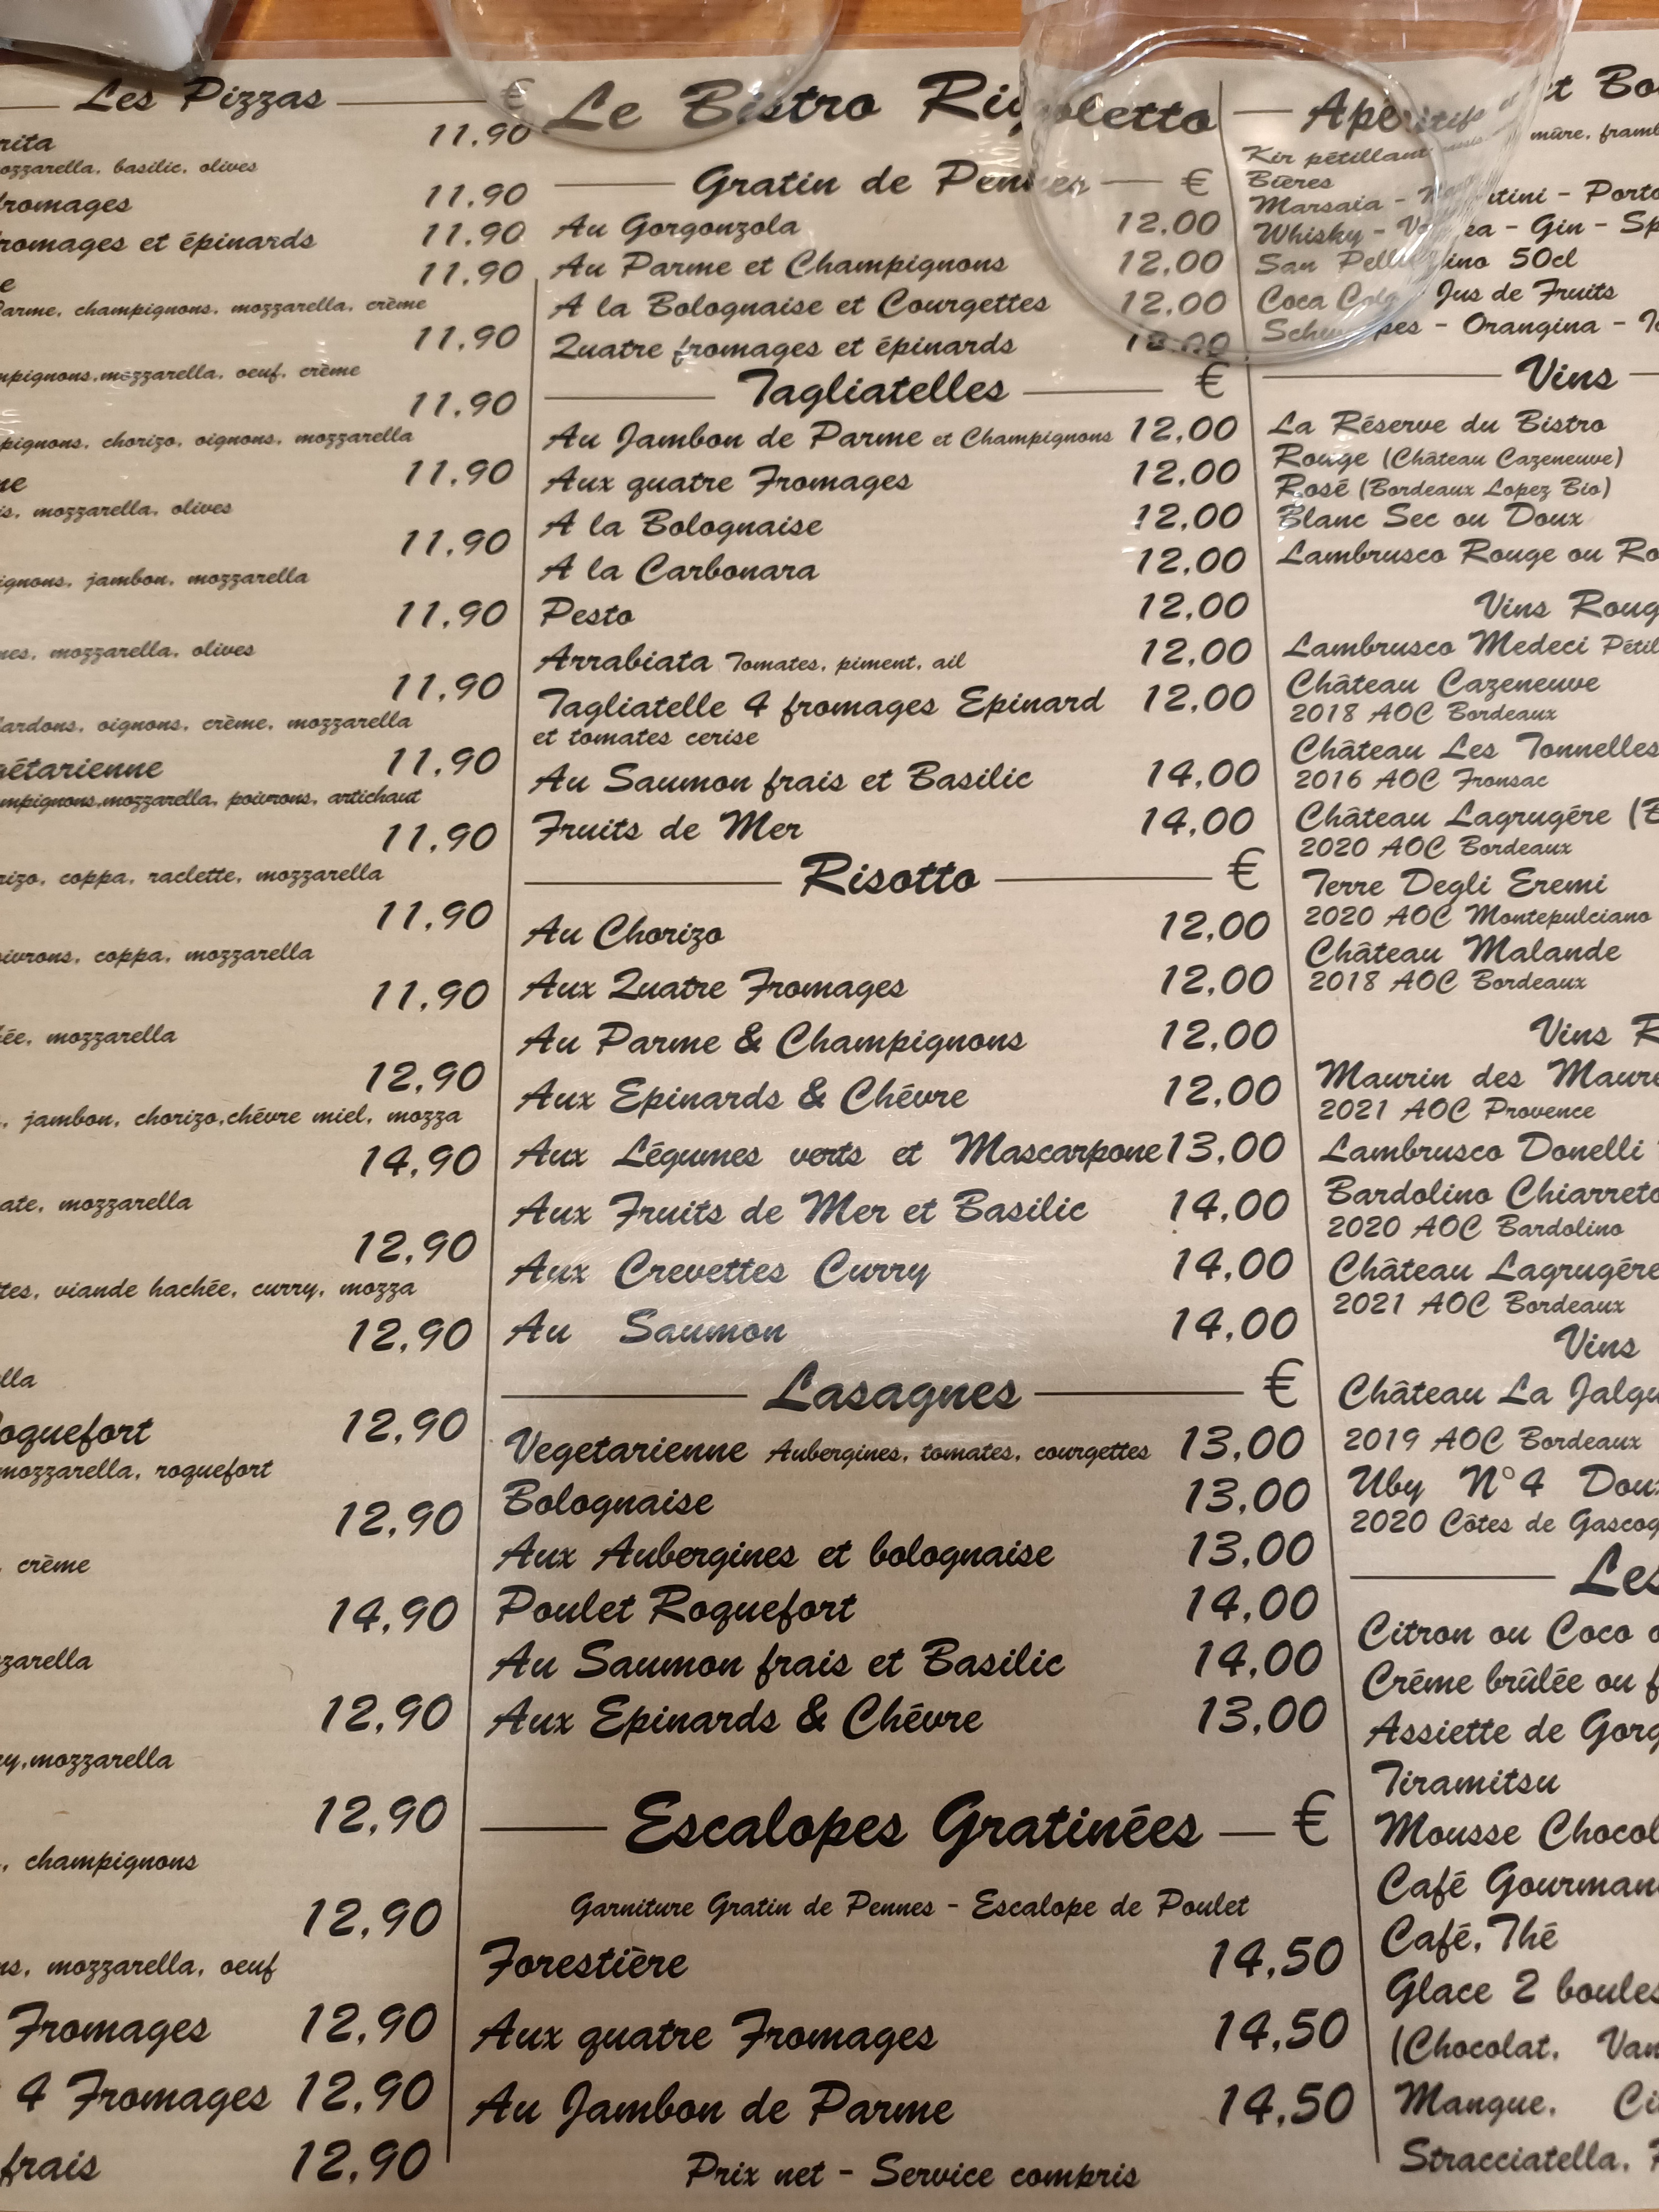 Les Pizzas €
rita 11.90
ozzarella, basilic, olives
fromages 11.90
romages et épinards 11.90
e 11.90
Parme, champignons, mozzarella, crème
11.90
mpignons,mozzarella, oeuf, crème
11.90
pignons, chorizo, oignons, mozzarella
ne 11.90
is, mozzarella, olives
11.90
ignons, jambon, mozzarella
11.90
nes, mozzarella, olives
11.90
lardons, oignons, crème, mozzarella
gétarienne 11.90
ampignons,mozzarella, poivrons, artichaut
11.90
rizo, coppa, raclette, mozzarella
11.90
oivrons, coppa, mozzarella
11.90
ée, mozzarella
12,90
, jambon, chorizo,chévre miel, mozza
14,90
ate, mozzarella
12,90
tes, viande hachée, curry, mozza
12,90
lla
oquefort 12,90
mozzarella, roquefort
12,90
, crème
14,90
zarella
12,90
ry,mozzarella
12,90
, champignons
12,90
ns, mozzarella, oeuf
Fromages 12,90
4 Fromages 12,90
frais 12,90
Le Bistro Rigoletto
Gratin de Pennes €
Au Gorgonzola 12,00
Au Parme et Champignons 12,00
A la Bolognaise et Courgettes 12,00
Quatre fromages et épinards
Tagliatelles €
Au Jambon de Parme et Champignons 12,00
Aux quatre Fromages 12,00
A la Bolognaise 12,00
A la Carbonara 12,00
Pesto 12,00
Arrabiata Tomates, piment, ail 12,00
Tagliatelle 4 fromages Epinard 12,00
et tomates cerise
Au Saumon frais et Basilic 14,00
Fruits de Mer 14,00
Risotto €
Au Chorizo 12,00
Aux Quatre Fromages 12,00
Au Parme & Champignons 12,00
Aux Epinards & Chévre 12,00
Aux Légumes verts et Mascarpone 13,00
Aux Fruits de Mer et Basilic 14,00
Aux Crevettes Curry 14,00
Au Saumon 14,00
Lasagnes €
Vegetarienne Aubergines, tomates, courgettes 13,00
Bolognaise 13,00
Aux Aubergines et bolognaise 13,00
Poulet Roquefort 14,00
Au Saumon frais et Basilic 14,00
Aux Epinards & Chévre 13,00
Escalopes Gratinées €
Garniture Gratin de Pennes - Escalope de Poulet
Forestière 14,50
Aux quatre Fromages 14,50
Au Jambon de Parme 14,50
Prix net - Service compris
Apéritifs et Bo
Kir pétillant mûre, framb
Bières
Marsala - Martini - Porto
Whisky - Vodka - Gin - Sp
San Pellegrino 50cl
Coca Cola Jus de Fruits
Schweppes - Orangina - Ic
Vins
La Réserve du Bistro
Rouge (Château Cazeneuve)
Rosé (Bordeaux Lopez Bio)
Blanc Sec ou Doux
Lambrusco Rouge ou Ro
Vins Roug
Lambrusco Medeci Pétil
Château Cazeneuve
2018 AOC Bordeaux
Château Les Tonnelles
2016 AOC Fronsac
Château Lagrugére (B
2020 AOC Bordeaux
Terre Degli Eremi
2020 AOC Montepulciano
Château Malande
2018 AOC Bordeaux
Vins R
Maurin des Maure
2021 AOC Provence
Lambrusco Donelli
Bardolino Chiarreto
2020 AOC Bardolino
Château Lagrugére
2021 AOC Bordeaux
Vins
Château La Jalgu
2019 AOC Bordeaux
Uby N°4 Doux
2020 Côtes de Gascog
Les
Citron ou Coco o
Créme brûlée ou f
Assiette de Gorg
Tiramitsu
Mousse Chocol
Café Gourman
Café, Thé
Glace 2 boules
(Chocolat, Van
Mangue, Ci
Stracciatella, P